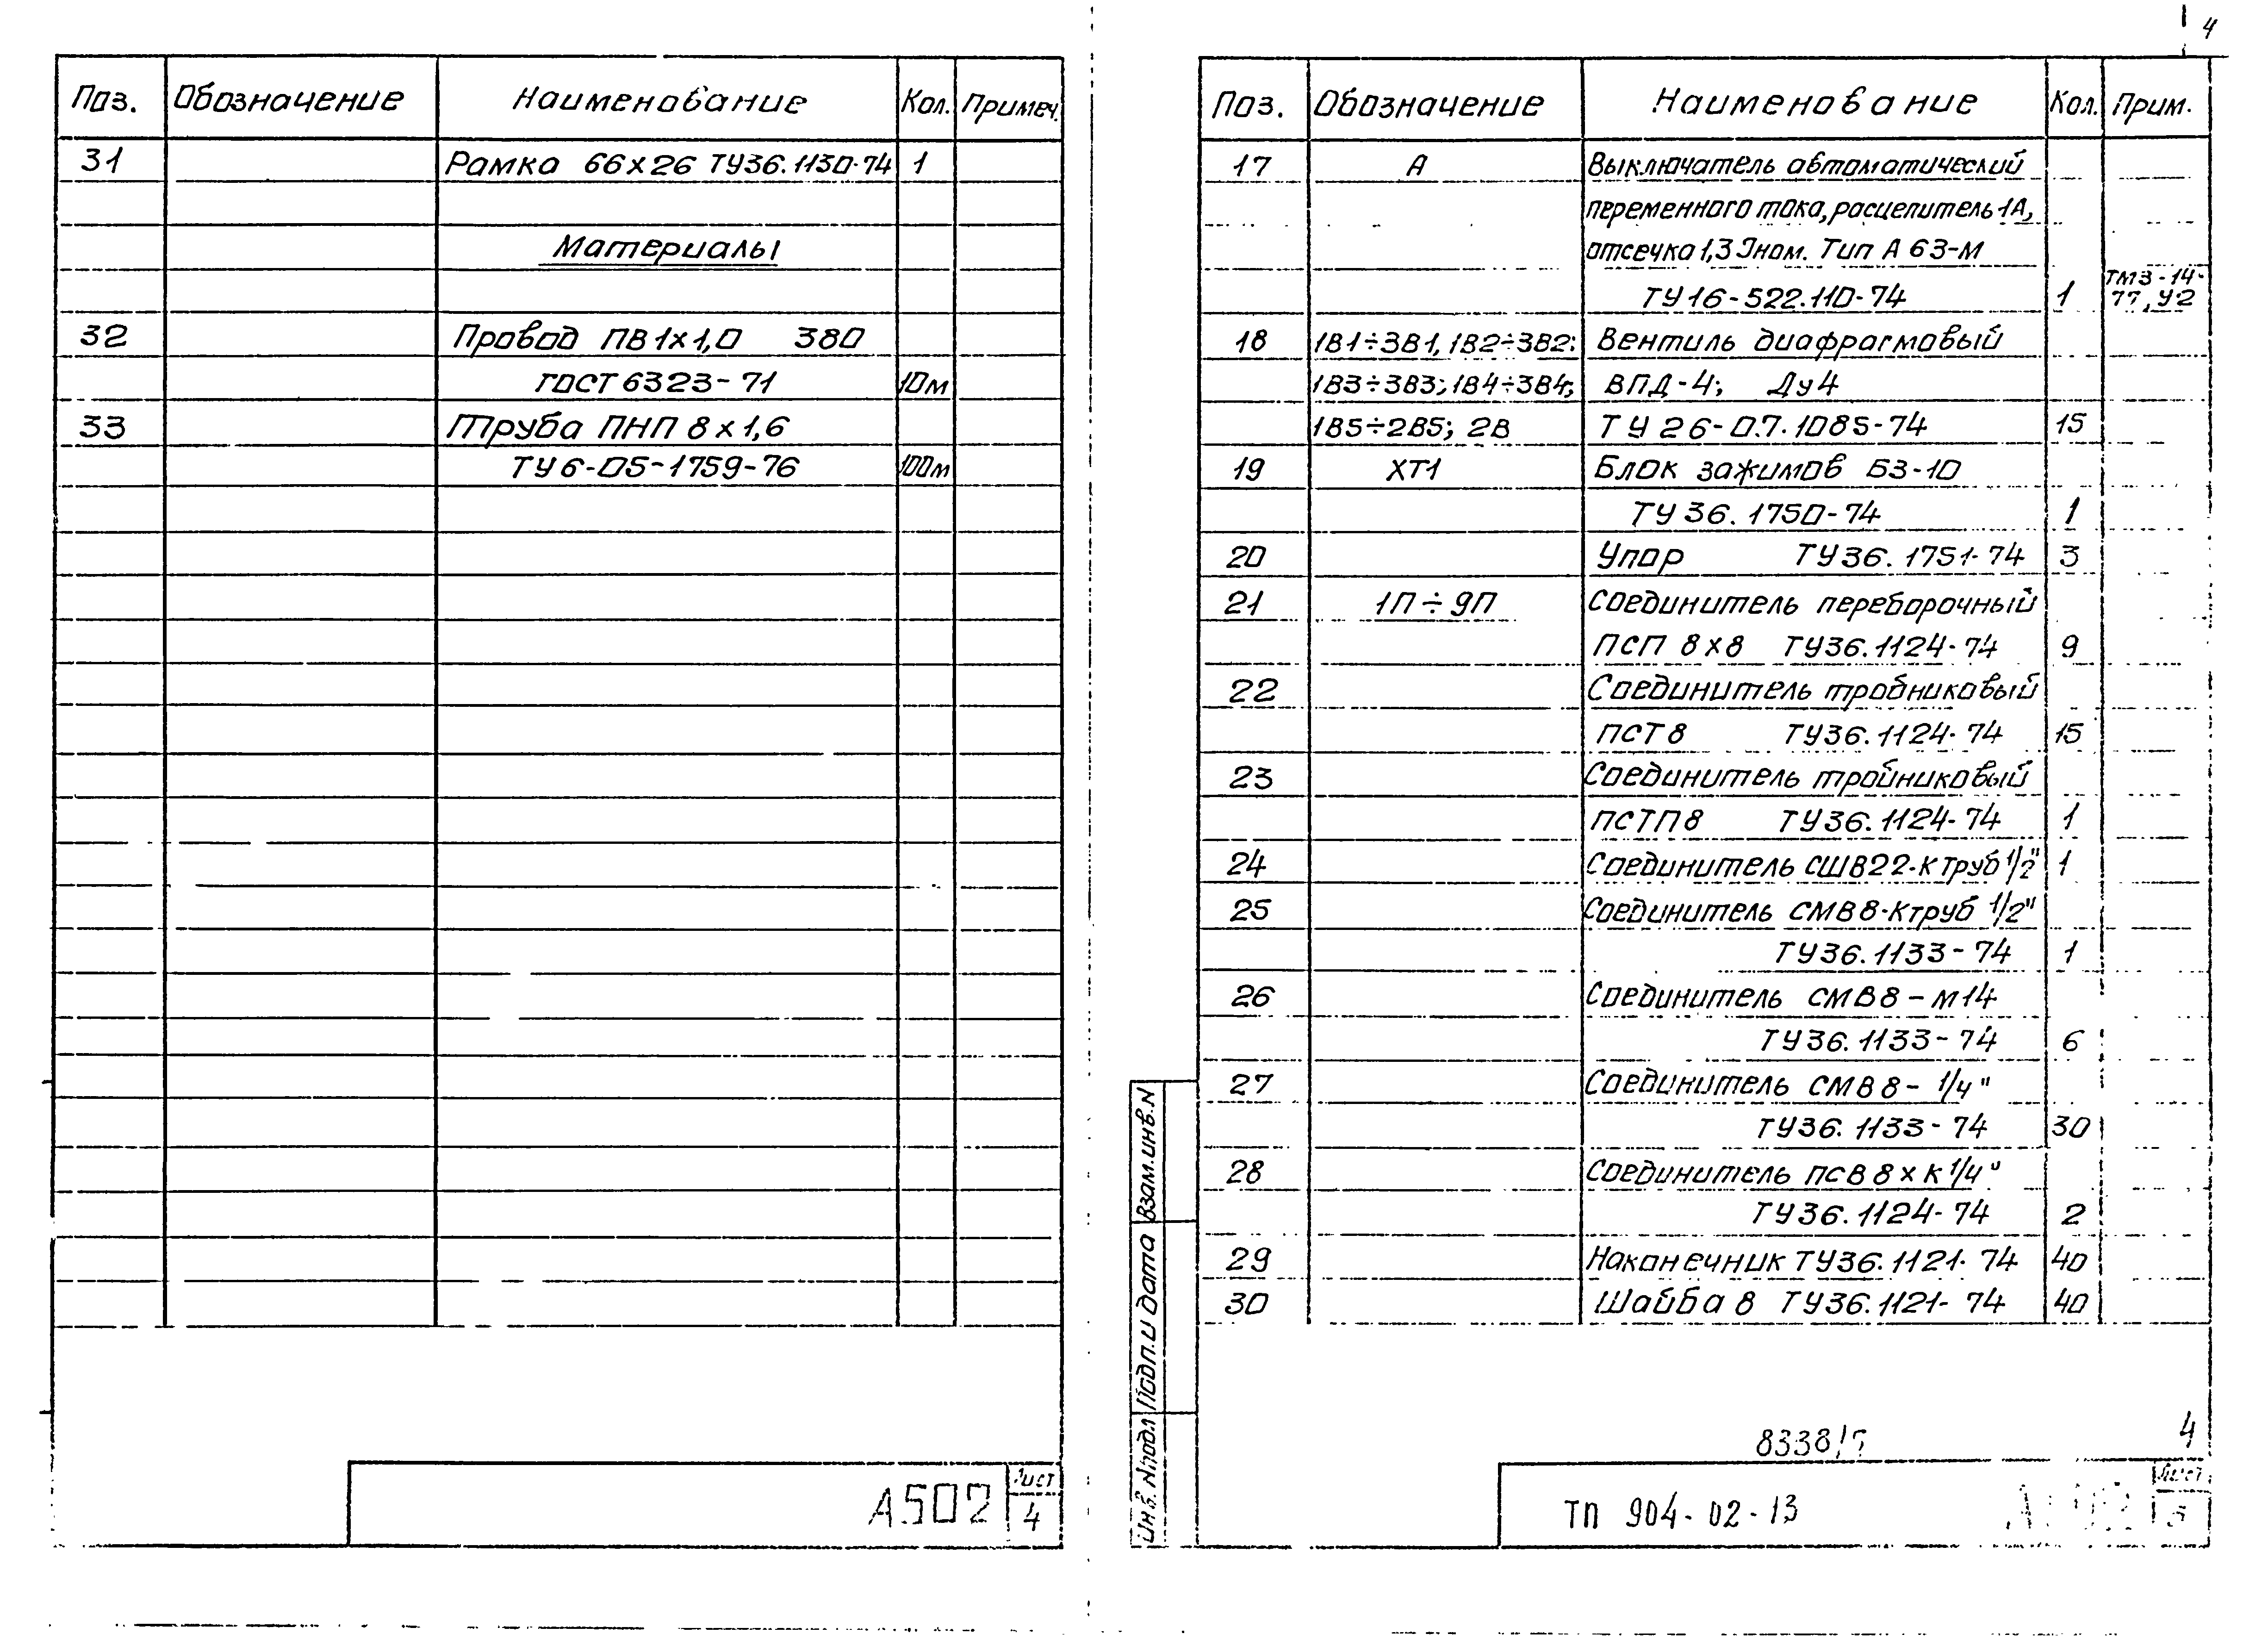 4
Поз. Обозначение Наименование Кол. Примеч.
31 Рамка 66х26 ТУ36.1130-74 1
Материалы
32 Провод ПВ1х1,0 380
ГОСТ 6323-71 10м
33 Труба ПНП 8х1,6
ТУ6-05-1759-76 100м
А502
Лист
4
Поз. Обозначение Наименование Кол. Прим.
17 А Выключатель автоматический
переменного тока, расцепитель 1А,
отсечка 1,3 Iном. Тип А 63-М
ТУ16-522.110-74 1 ТМ3-14-77, У2
18 1В1÷3В1, 1В2÷3В2; Вентиль диафрагмовый
1В3÷3В3; 1В4÷3В4; ВПД-4; Ду4
1В5÷2В5; 2В ТУ 26-07.1085-74 15
19 ХТ1 Блок зажимов БЗ-10
ТУ 36.1750-74 1
20 Упор ТУ36.1751-74 3
21 1П÷9П Соединитель переборочный
ПСП 8х8 ТУ36.1124-74 9
22 Соединитель тройниковый
ПСТ8 ТУ36.1124-74 15
23 Соединитель тройниковый
ПСТП8 ТУ36.1124-74 1
24 Соединитель СШВ22-К труб 1/2" 1
25 Соединитель СМВ8-Ктруб 1/2"
ТУ36.1133-74 1
26 Соединитель СМВ8-М14
ТУ36.1133-74 6
27 Соединитель СМВ8-1/4"
ТУ36.1133-74 30
28 Соединитель ПСВ8хК1/4"
ТУ36.1124-74 2
29 Наконечник ТУ36.1121-74 40
30 Шайба 8 ТУ36.1121-74 40
Взам.инв.N
Подп.и дата
Инв.Nподл
4
ТП 904-02-13
Лист